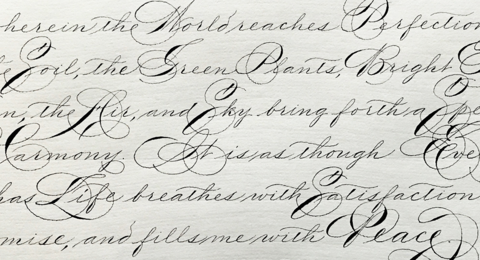 herein the World reaches Perfection
Soil, the Green Plants, Bright
n, the Air, and Sky bring forth a Spe
Harmony. It is as though Eve
has Life breathes with Satisfaction
mise, and fills me with Peace.